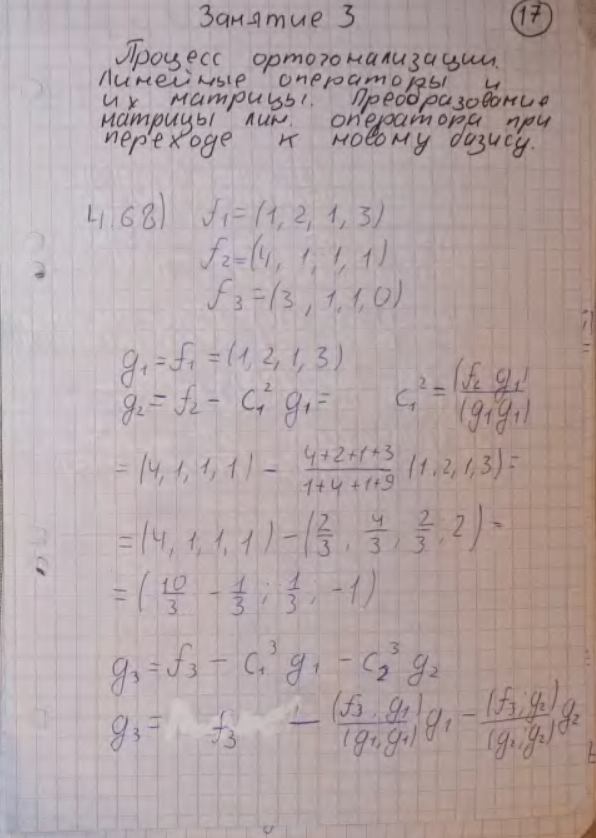 Занятие 3
17
Процесс ортогонализации.
Линейные операторы и
их матрицы. Преобразование
матрицы лин. оператора при
переходе к новому базису.
4.68) f₁=(1, 2, 1, 3)
f₂=(4, 1, 1, 1)
f₃=(3, 1, 1, 0)
g₁=f₁=(1, 2, 1, 3)
g₂= f₂ - c₁² g₁= c₁² = (f₂ g₁)/(g₁ g₁)
=(4, 1, 1, 1) - (4+2+1+3)/(1+4+1+9) (1, 2, 1, 3)=
=(4, 1, 1, 1) - (2/3, 4/3, 2/3, 2)=
=(10/3 - 1/3; 1/3; -1)
g₃=f₃ - c₁³ g₁ - c₂³ g₂
g₃= f₃ - (f₃, g₁)/(g₁, g₁) g₁ - (f₃; g₂)/(g₂; g₂) g₂